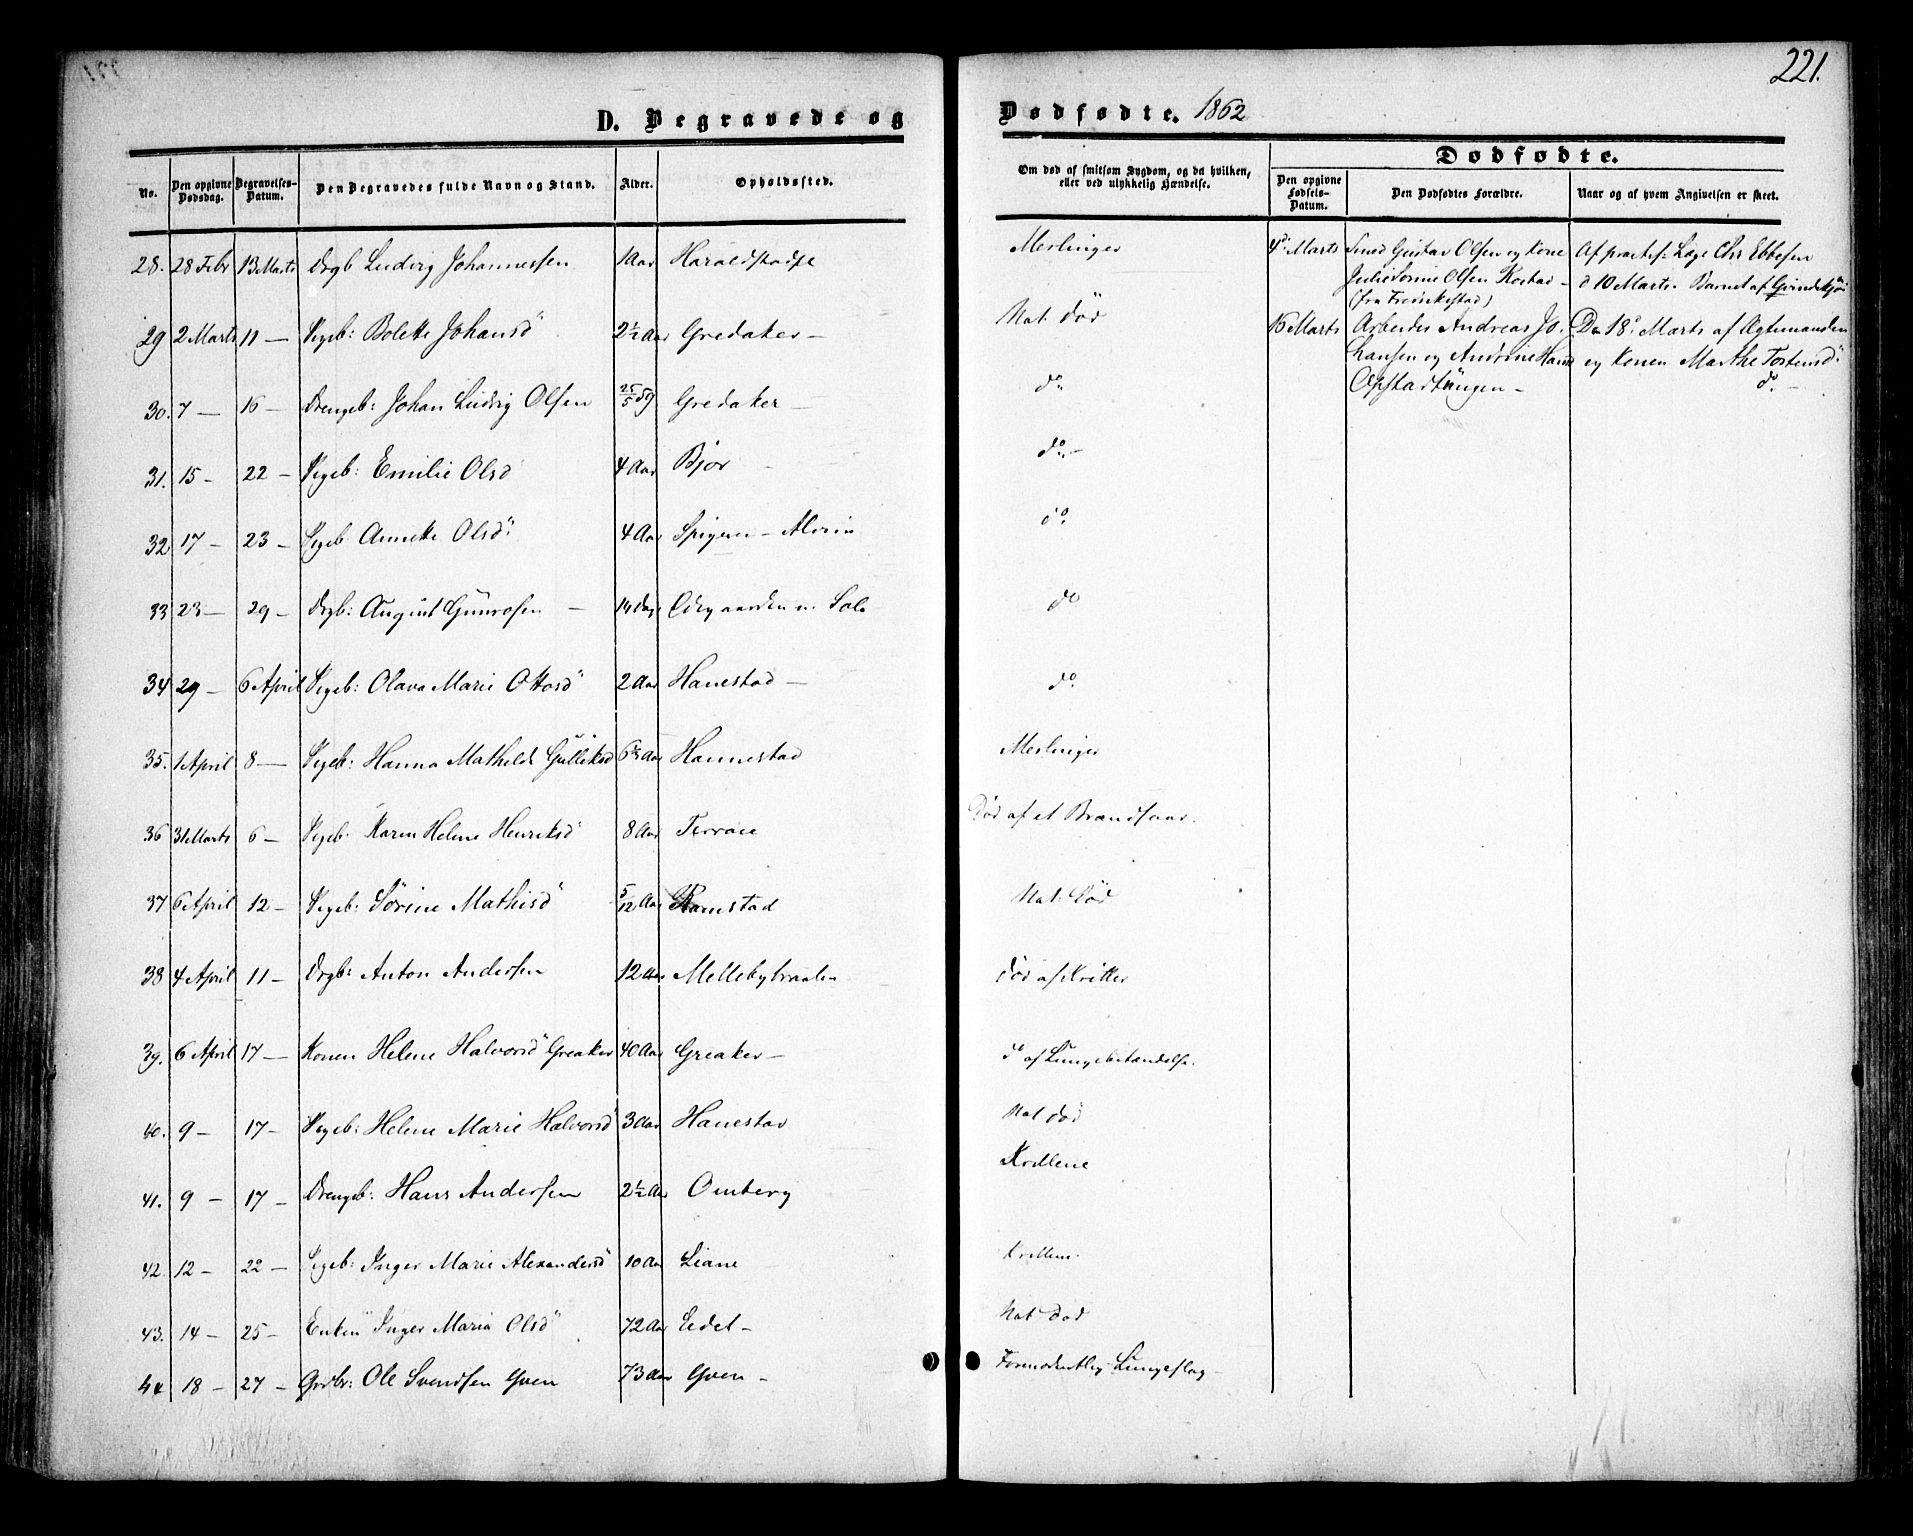 221.
D. Begravede og Dødfødte. 1862
No.
Den opgivne Dødsdag.
Begravelses-Datum.
Den Begravedes fulde Navn og Stand.
Alder.
Opholdssted.
Om død af smitsom Sygdom, og da hvilken, eller ved ulykkelig Hændelse.
Dødfødte.
Den opgivne Fødsels-Datum.
Den Dødfødtes Forældre.
Naar og af hvem Angivelsen er skeet.
28. 28 Febr 13 Marts Drgb Ludvig Johannessen 1 Aar Haraldstadse Meslinger
29 2 Marts 11 — Pigeb: Bolette Johansd 2½ Aar Gredaker — Nat. død
30. 7 — 16 — Drengeb: Johan Ludvig Olsen Gredaker — do
31. 15 — 22 — Pigeb: Emilie Olsd 4 Aar Bjor do —
32 17 — 23 — Pigeb Annette Olsd: 4 Aar Alvim do
33 23 — 29 — Drgb: August Gunrosen — 14 Dage Ødegaarden u. Solo do
34 29 — 6 April Pigeb: Olava Marie Ottosd 2 Aar Hanestad — do.
35. 1 April 8 — Pigeb: Hanna Mathilde Gulliksd 6½ Aar Hannestad Meslinger
36 31 Marts 6 — Pigeb. Karen Helene Henriksd 8 Aar Død af et Brandsaar.
37 6 April 12 — Pigeb: Sørine Mathisd 5/12 Aar Ramstad Nat. død
38 4 April 11 — Drgb: Anton Andersen 12 Aar Mellebybraaten Død af
39. 6 April 17 — Konen Helene Halvorsd Greaker 40 Aar Greaker — do af Lungebetændelse.
40. 9 — 17 — Pigeb: Helene Marie Halvorsd 3 Aar Hanestad Nat død
41. 9 — 17 — Drengeb: Hans Andersen 2½ Aar Omberg Krillene
42. 12 — 22 — Pigeb: Inger Marie Alexandersd 10 Aar Liane Krillene
43. 14 — 25 — Enken Inger Maria Olsd 72 Aar Eedet — Nat død
44 18 — 27 — Grdbr: Ole Svendsen Yven 73 Aar Yven — Formodentlig Lungeslag
4de Marts
Smed Gustav Olsen og Kone
Julie Sorine Olsen
(fra Fredrikstad)
af pract: Læge Chr Ebbesen
d 10 Marts. Barnet af
16 Marts
Arbeider Andreas Jo-
hansen og Andrine Hansd
Opstadtangen —
Den 18de Marts af Ægtemanden
og Konen Marthe Torstensd:
do. —